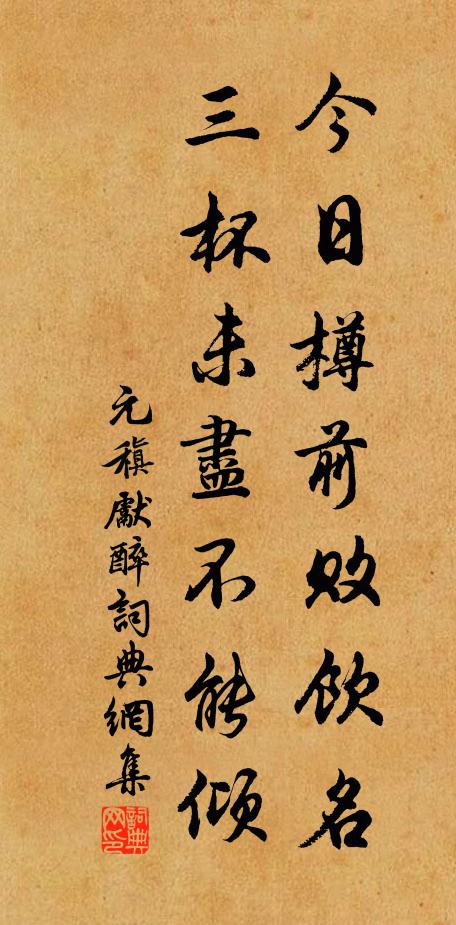 今日樽前敗飲名
三杯未盡不能傾
元稹獻醉詞典網集
詞典网印